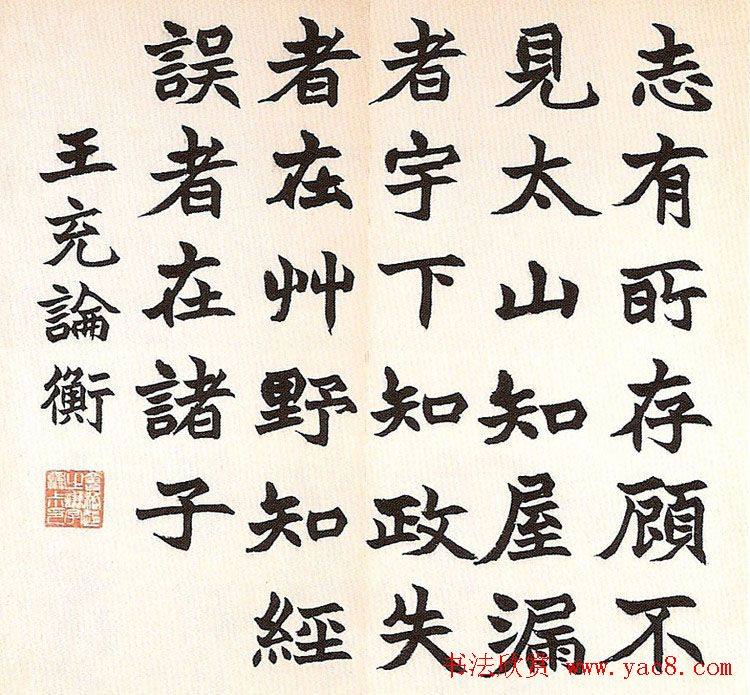 志有所存顾不
見太山知屋漏
者宇下知政失
者在艸野知經
誤者在諸子
王充論衡
书法欣赏 www.yac8.com